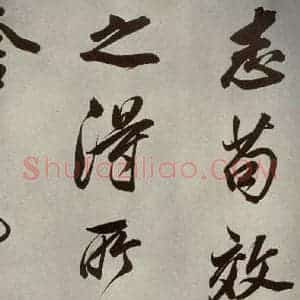 志苟效
之得所
Shufaziliao.COM